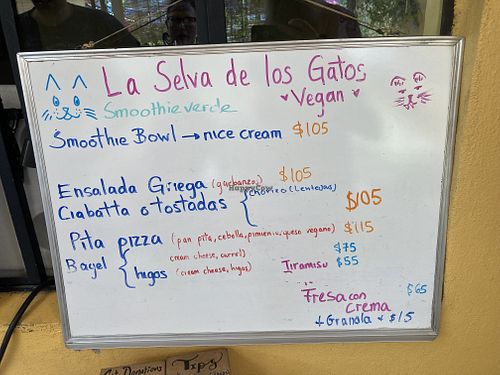 La Selva de los Gatos
Smoothie verde
Vegan
Smoothie Bowl → nice cream $105
Ensalada Griega (garbanzo) $105
Ciabatta o tostadas { Chorizo (Lentejas) $105
Pita pizza (pan pita, cebolla, pimiento, queso vegano) $115
Bagel { cream cheese, carrot) $75
higos (cream cheese, higos)
Tiramisu $55
Fresa con $65
Crema
+ Granola + $15
Cat Donations
Tips